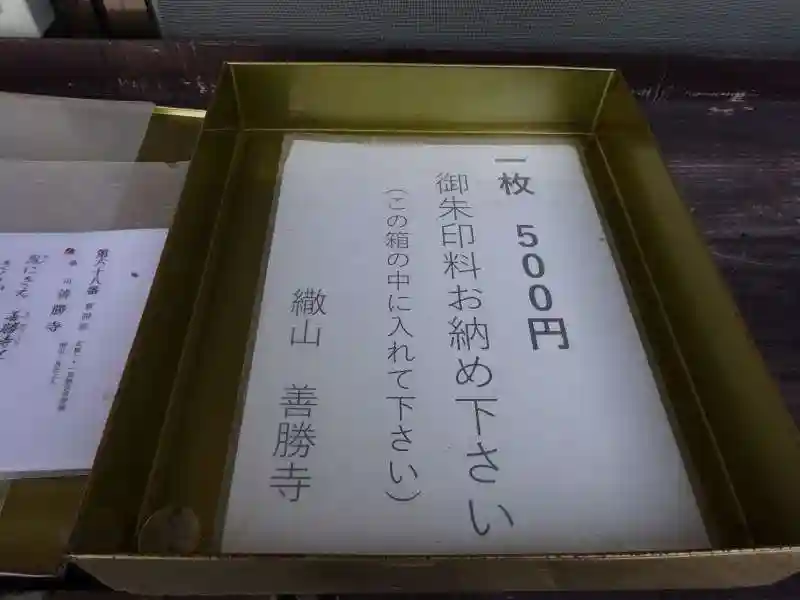 一枚 500円
御朱印料お納め下さい
(この箱の中に入れて下さい)
繖山 善勝寺
第六十八番
善勝寺